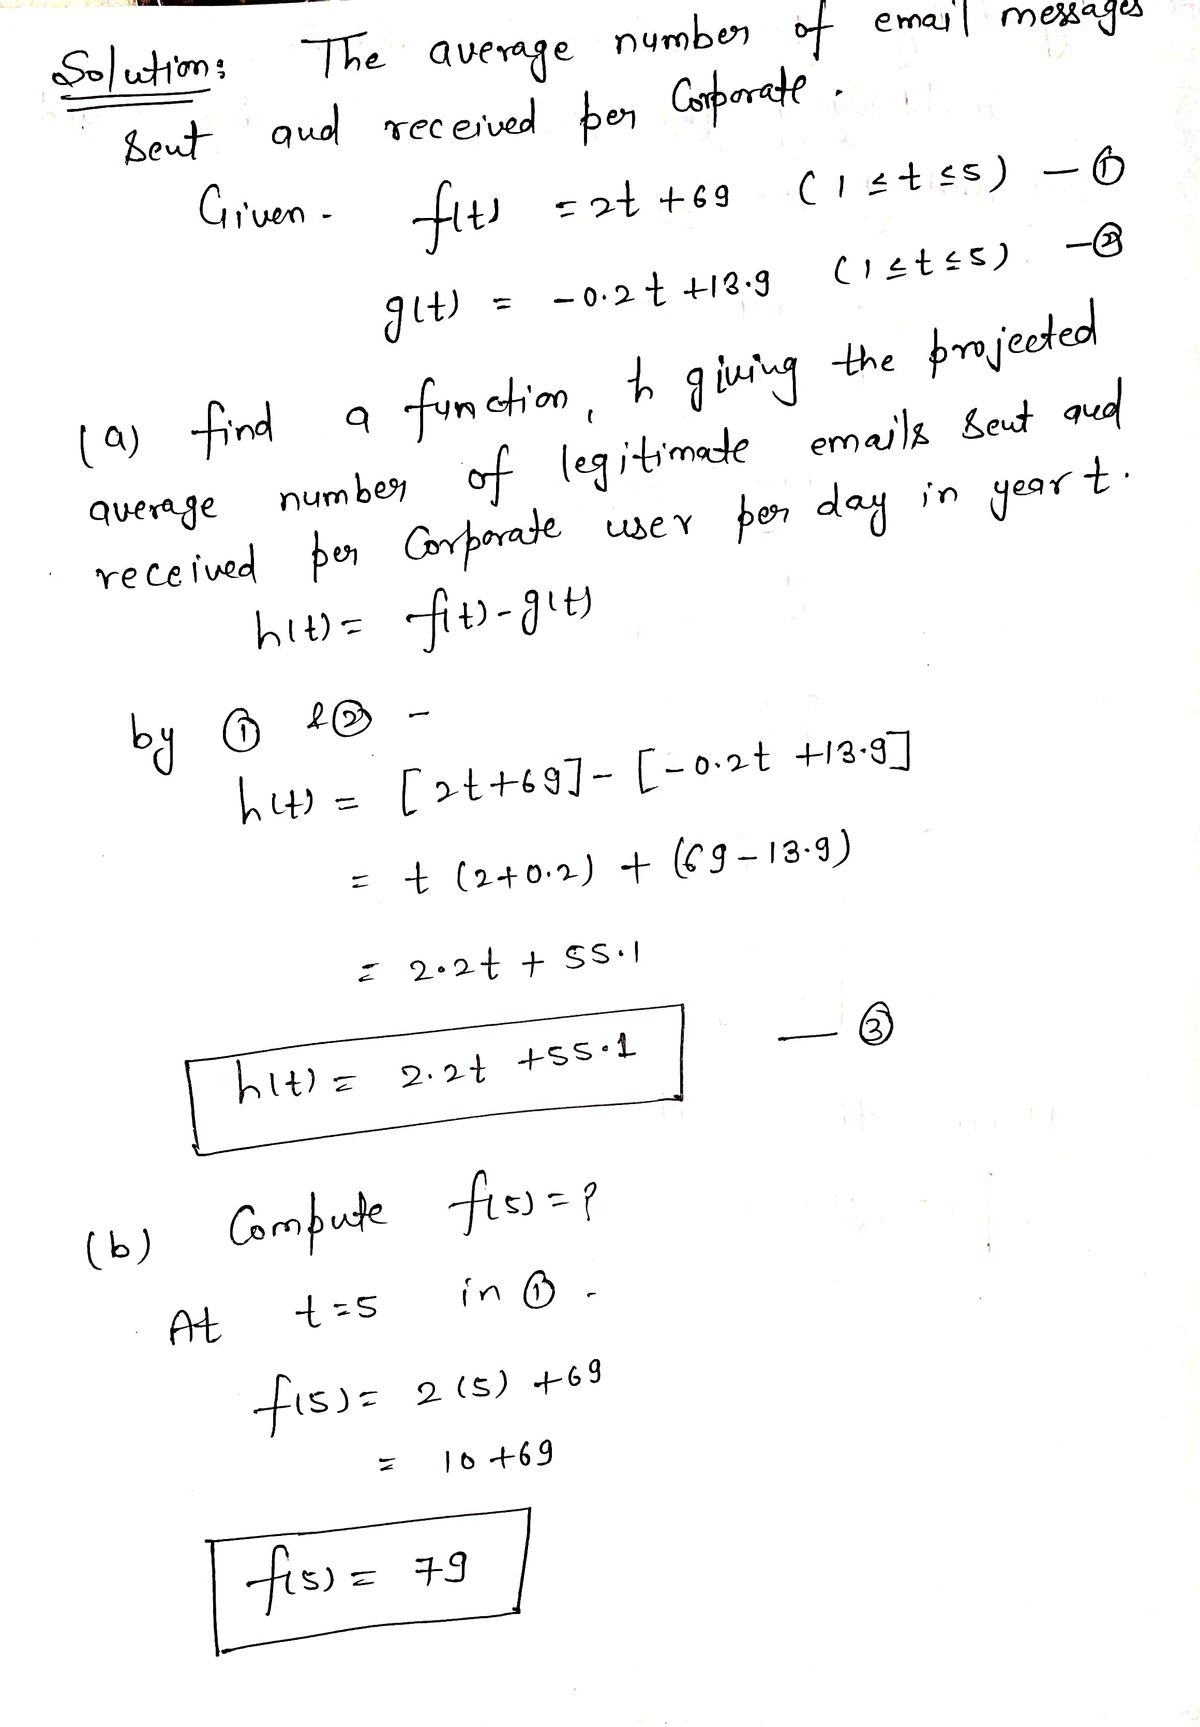 Solution: The average number of email messages
sent and received per Corporate.
Given - f(t) = 2t + 69 (1 ≤ t ≤ 5) — ①
g(t) = -0.2t + 13.9 (1 ≤ t ≤ 5) — ②
(a) find a function, h giving the projected
average number of legitimate emails sent and
received per Corporate user per day in year t.
h(t) = f(t) - g(t)
by ① & ② -
h(t) = [2t + 69] - [-0.2t + 13.9]
= t (2 + 0.2) + (69 - 13.9)
= 2.2t + 55.1
h(t) = 2.2t + 55.1 — ③
(b) Compute f(5) = ?
At t = 5 in ① -
f(5) = 2(5) + 69
= 10 + 69
f(5) = 79